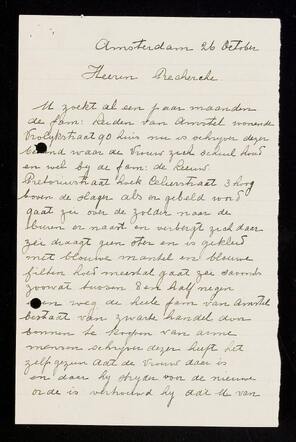 Amsterdam 26 October
Heeren Recherche
U zoekt al een paar maanden
de fam: Leiden van Amstel wonende
Vrolykstraat 90 huis nu is schryver dezer
bekend waar de vrouw zich schuil houd
en wel by de fam: de Leeuw
Pretoriusstraat hoek Cilierstraat 3 hoog
boven de slager als er gebeld word
gaat zei over de zolder naar de
buren er naast en verbergt zich daar
zei draagt geen ster en is gekleed
met blouwe mantel en blouwe
filten hoed meestal gaat zei savonds
zoowat tussen 8 en half negen
een weg de heele fam van Amstel
bestaat van zwarte handel door
bonnen te koopen van arme
menschen schryver dezer heeft het
zelf gezien dat de vrouw daar is
en daar hy stryder voor de nieuwe
orde is verhoend hy dat U van